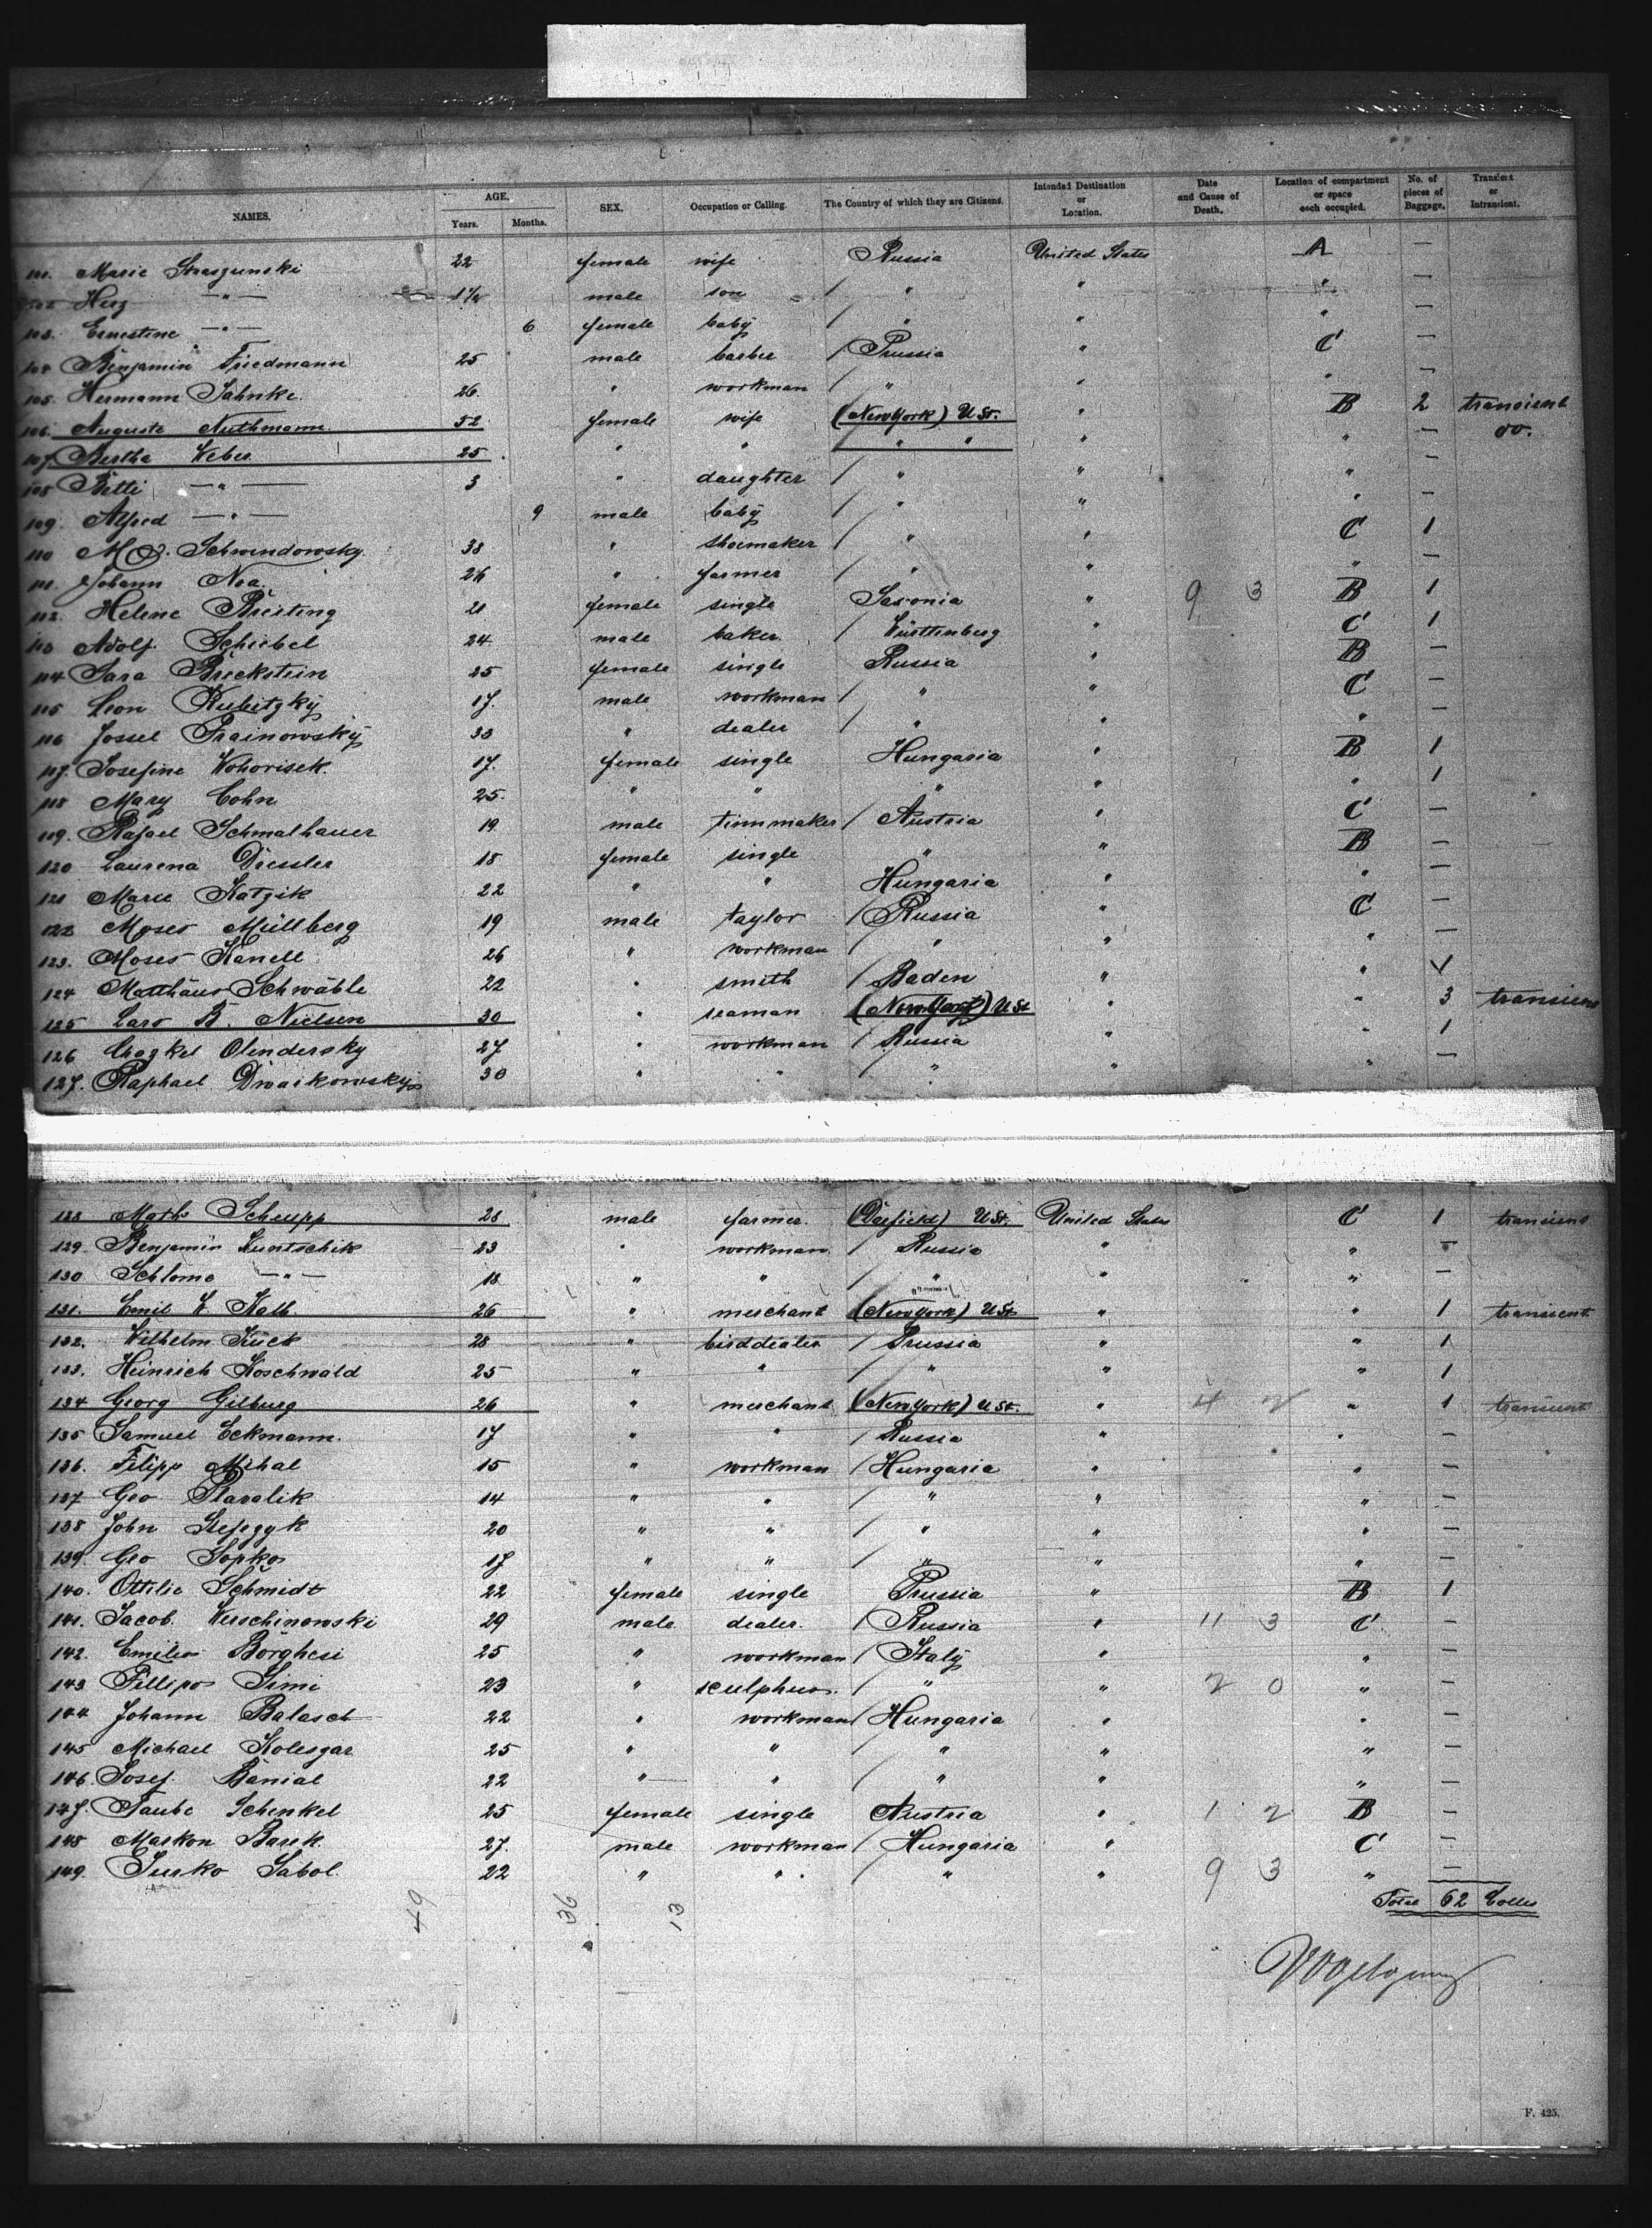 NAMES. AGE. Years. Months. SEX. Occupation or Calling. The Country of which they are Citizens. Intended Destination or Location. Date and Cause of Death. Location of compartment or space each occupied. No. of pieces of Baggage. Transient or Intransient.
101. Marie Straszunski 22 female wife Russia United States A —
102 Herz —"— 1½ male son / " " " —
103. Ernestine —"— 6 female baby / " " " —
104 Benjamin Friedmann 25 male barber / Prussia " C —
105. Hermann Jahnke. 26. " workman / " " " —
106. Auguste Nuthmann 52 female wife (New York) U St. " B 2 transient
107 Bertha Weber 25 " " " " " " — do.
108 Betti —"— 3 " daughter / " " " —
109. Alfred —"— 9 male baby / " " " —
110 M. Schwendowsky. 38 " shoemaker / " " C 1
111. Johann Noa. 26 " farmer / " " " —
112. Helene Breiting 21 female single Saxonia " 9 3 B 1
113 Adolf Schiebel 24 male baker / Württenberg " C 1
114 Sara Breckstein 25 female single Russia " B —
115 Leon Kubitzky 17. male workman / " " C —
116 Jossel Trainowsky 33 " dealer / " " " —
117. Josefine Wohorisek 17. female single Hungaria " B 1
118 Mary Cohn 25. " " " " " 1
119. Rafael Schmalhauer 19 male tinnmaker / Austria " C —
120 Laurena Dressler 18 female single " " B —
121 Marie Katzik 22 " " Hungaria " " —
122 Moses Müllberg 19 male taylor / Russia " C —
123. Moses Kanell 26 " workman / " " " —
124 Matthäus Schwäble 22 " smith / Baden " "
125 Lars B. Nielsen 30 " seaman (New York) U St " " 3 transient
126 Chazkel Olendersky 27 " workman / Russia " " 1
127. Raphael Dwaikowsky 30 " " " " " —
128 Math Scheupp 28 male farmer. (Defield) U St. United States C 1 transient
129. Benjamin Kuntschik 23 " workman / Russia " " —
130 Schlome —"— 18 " " / " " " —
131. Emil W. Kalb 26 " merchant (New York) U St. " " 1 transient
132. Wilhelm Kück 28 " birddealer / Prussia " " 1
133. Heinrich Koschwald 25 " " / " " " 1
134 Georg Gilburg 26 " merchant (New York) U St. " 4 2 " 1 transient
135 Samuel Eckmann. 17 " " / Russia " " —
136. Filipp Mihal 15 " workman / Hungaria " " —
137 Geo Plavalik 14 " " / " " " —
138 John Stefczyk 20 " " / " " " —
139. Geo Sopko 17 " " / " " " —
140. Ottilie Schmidt 22 female single Prussia " B 1
141. Jacob Werschinowski 29 male dealer. / Russia " 11 3 C —
142. Emilio Borghesi 25 " workman / Italy " " —
143 Fillipo Simi 23 " sculpheur. / " " 2 0 " —
144 Johann Balasch 22 " workman / Hungaria " " —
145 Michael Kolesgar 25 " " / " " " —
146. Josef Banial 22 " " / " " " —
147. Taube Schenkel 25 female single Austria " 1 2 B —
148 Markon Barek 27. male workman / Hungaria " C —
149. Jurko Sabol. 22 " " / " " 9 3 " —
Total 62 Colles
49 36 13
F. 425.